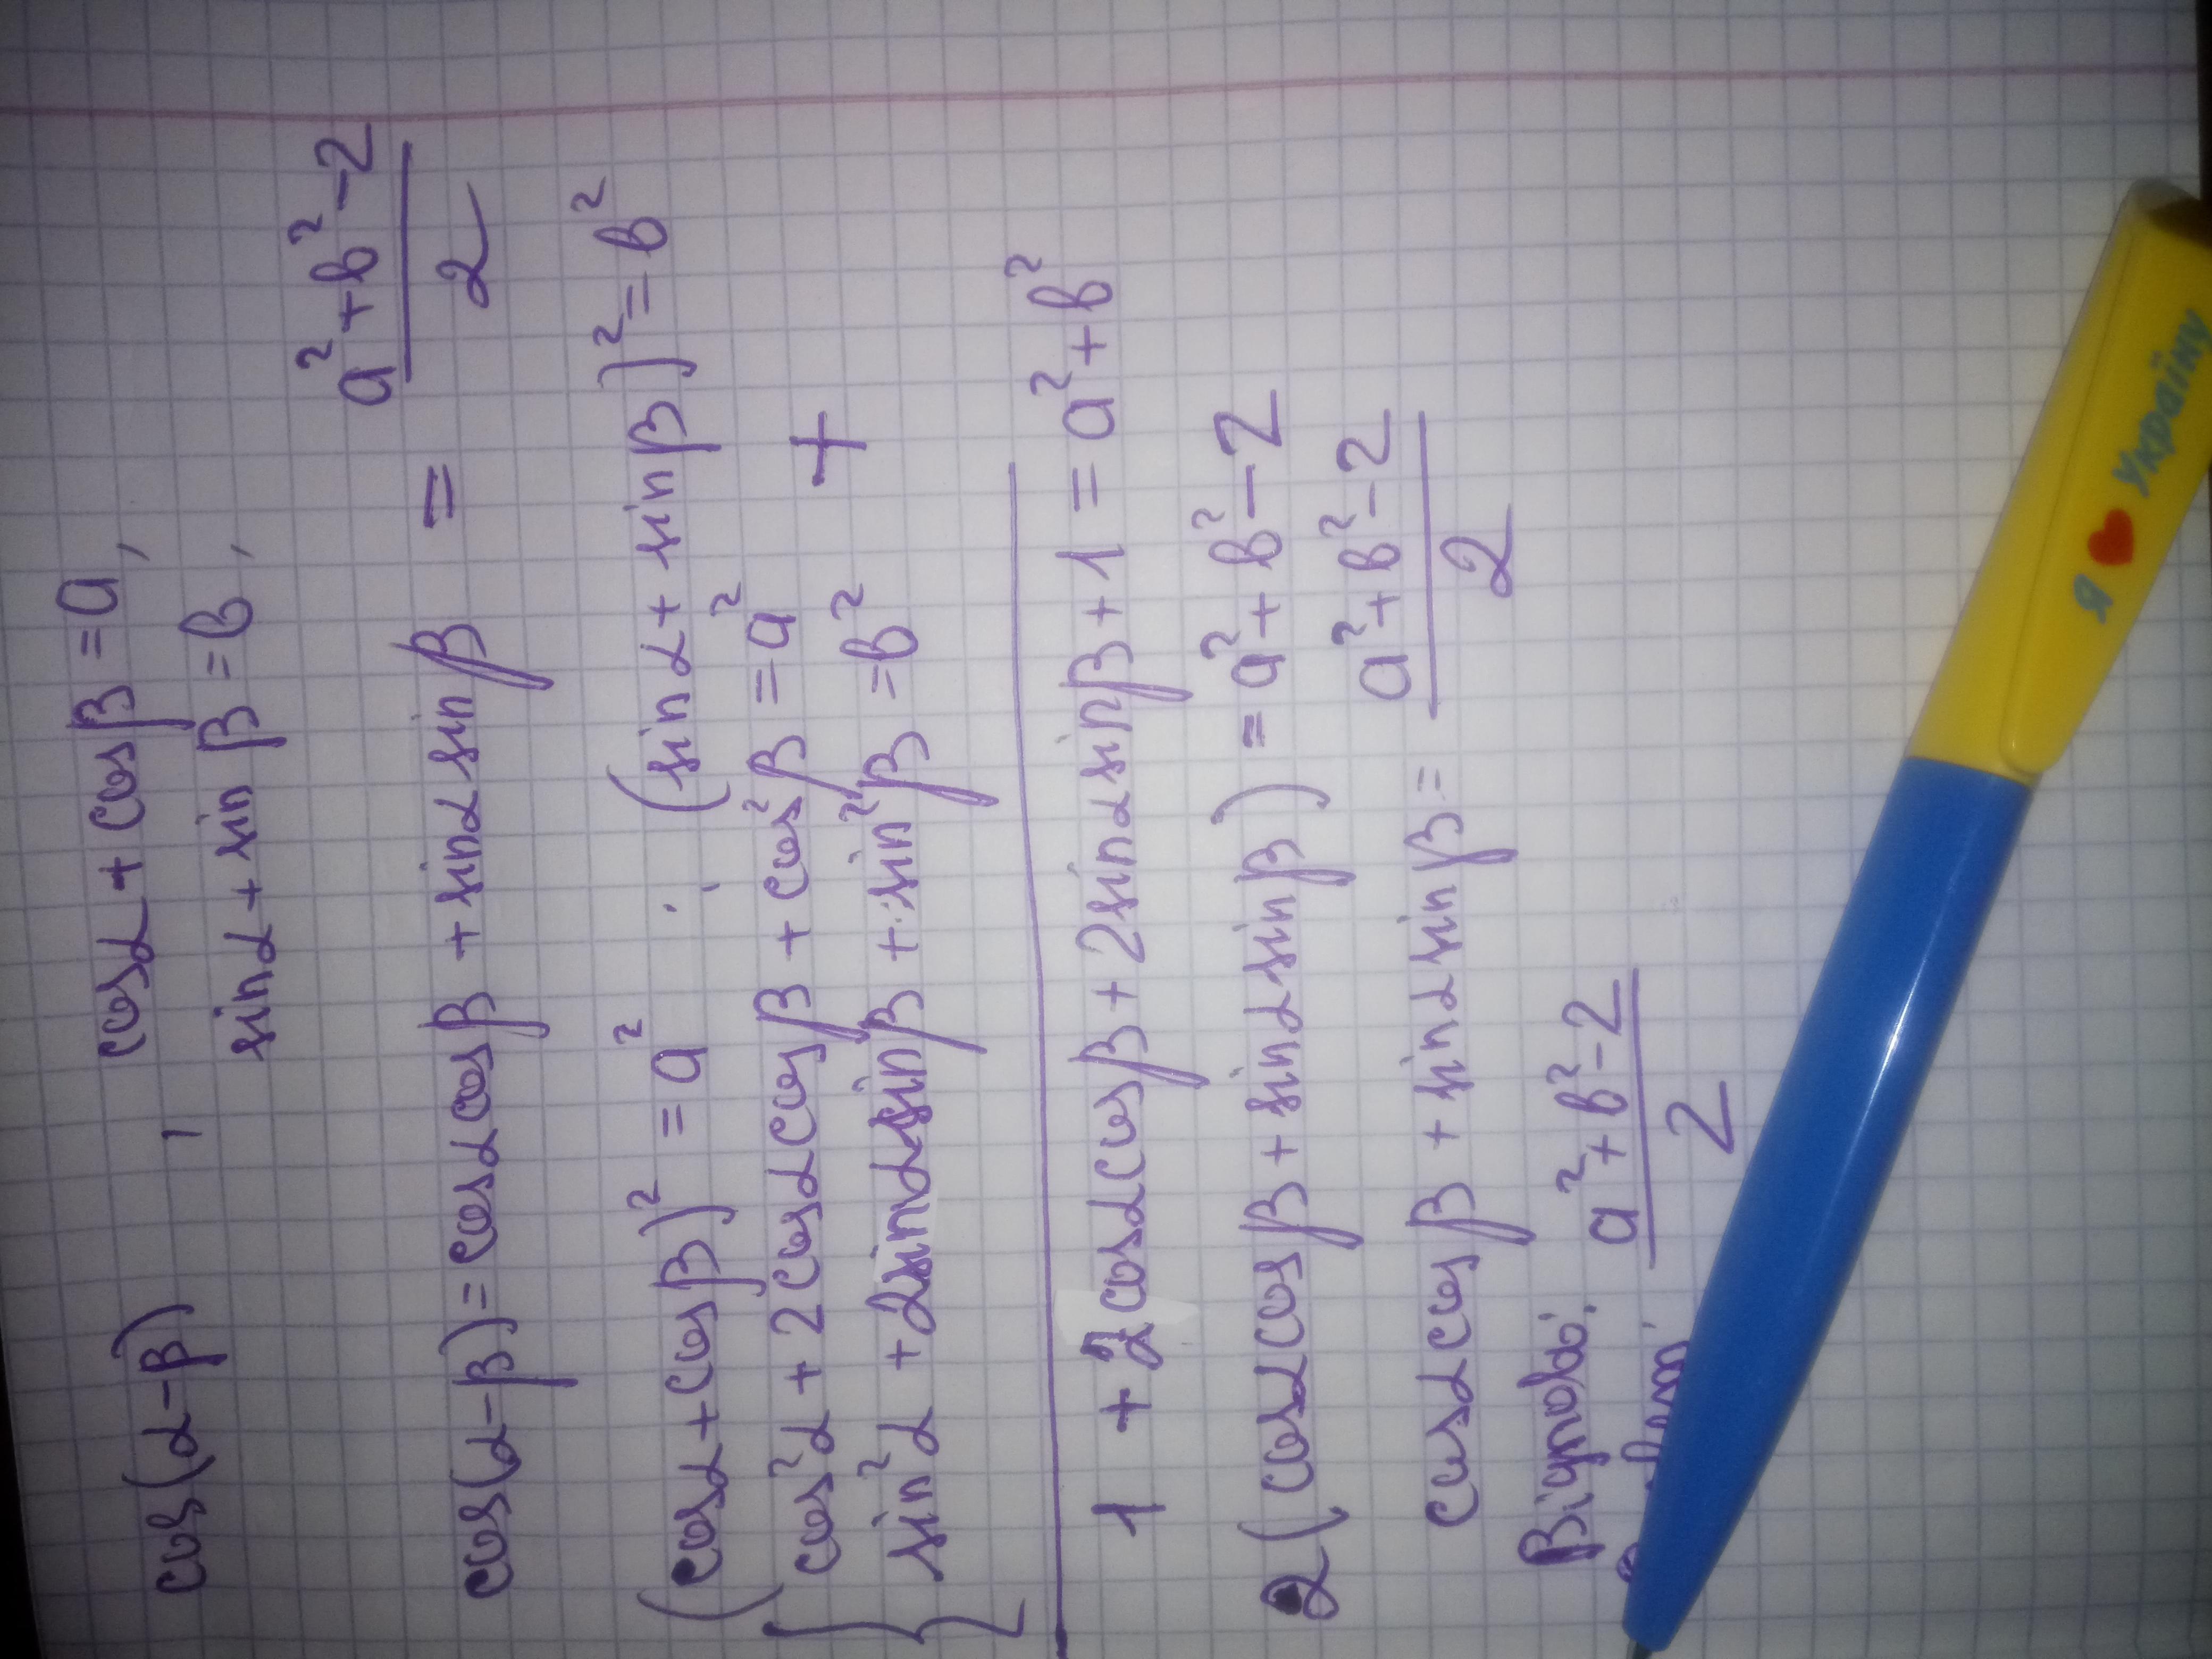 cos(α-β), cosα + cosβ = a,
sinα + sinβ = b,
cos(α-β) = cosα cosβ + sinα sinβ = (a² + b² - 2)/2
(cosα + cosβ)² = a²; (sinα + sinβ)² = b²
{ cos²α + 2cosα cosβ + cos²β = a²
sin²α + 2sinα sinβ + sin²β = b² +
1 + 2cosα cosβ + 2sinα sinβ + 1 = a² + b²
2(cosα cosβ + sinα sinβ) = a² + b² - 2
cosα cosβ + sinα sinβ = (a² + b² - 2)/2
Відповідь: (a² + b² - 2)/2
Я ❤ Україну